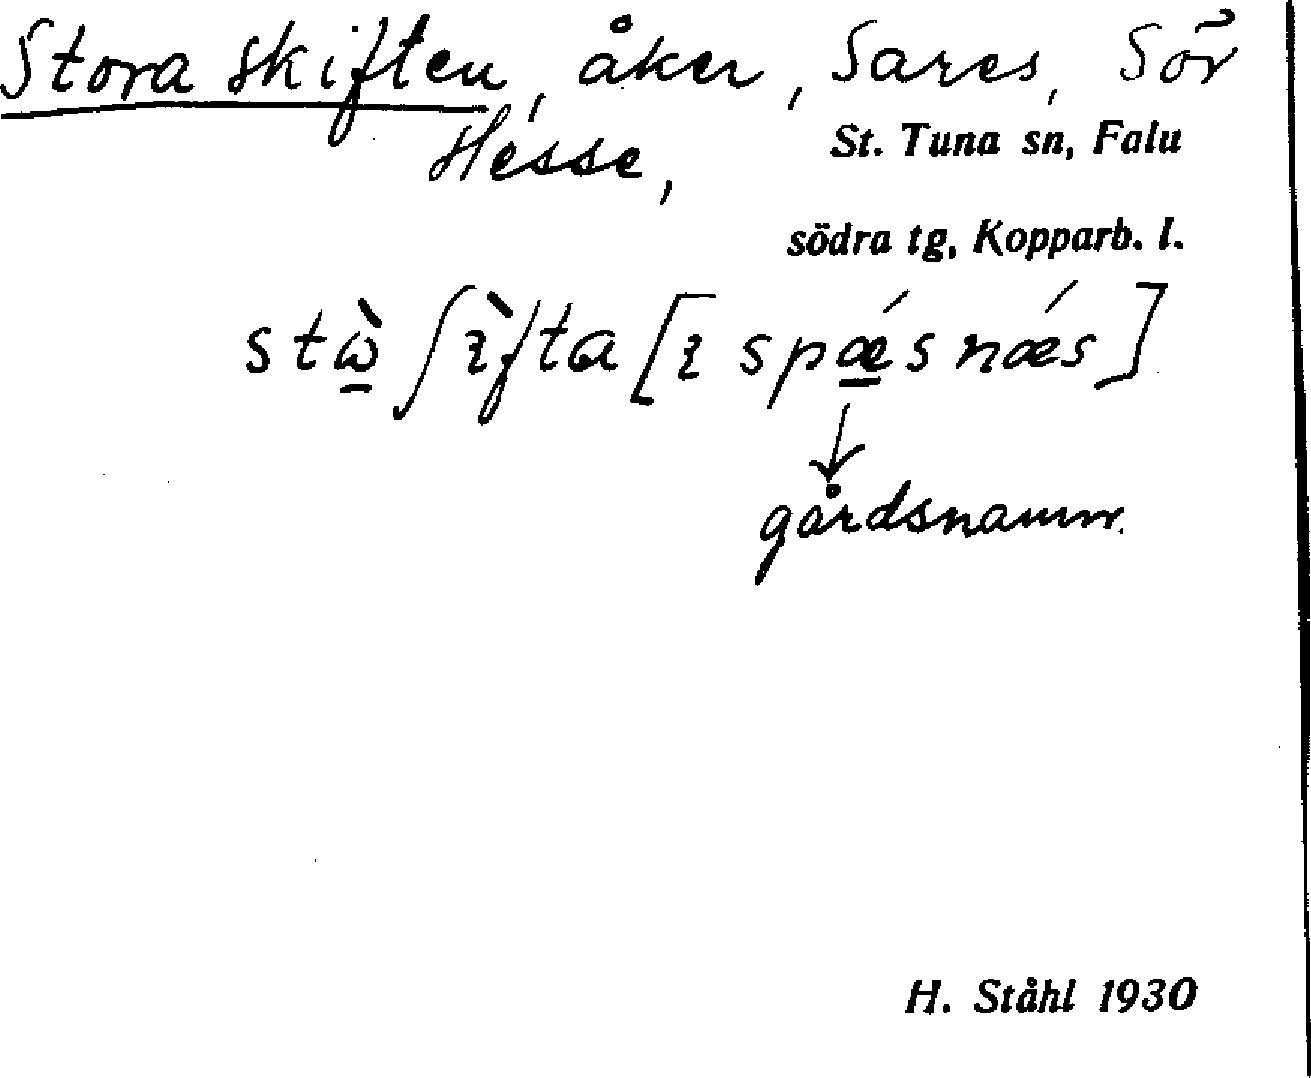 Stora skiften, åker, Sares, Sör
Hesse,
St. Tuna sn, Falu
södra tg, Kopparb. l.
stὼ̠ ʃı̀fta [ı spǽ̠snǽs]
↓
gårdsnamn.
H. Ståhl 1930